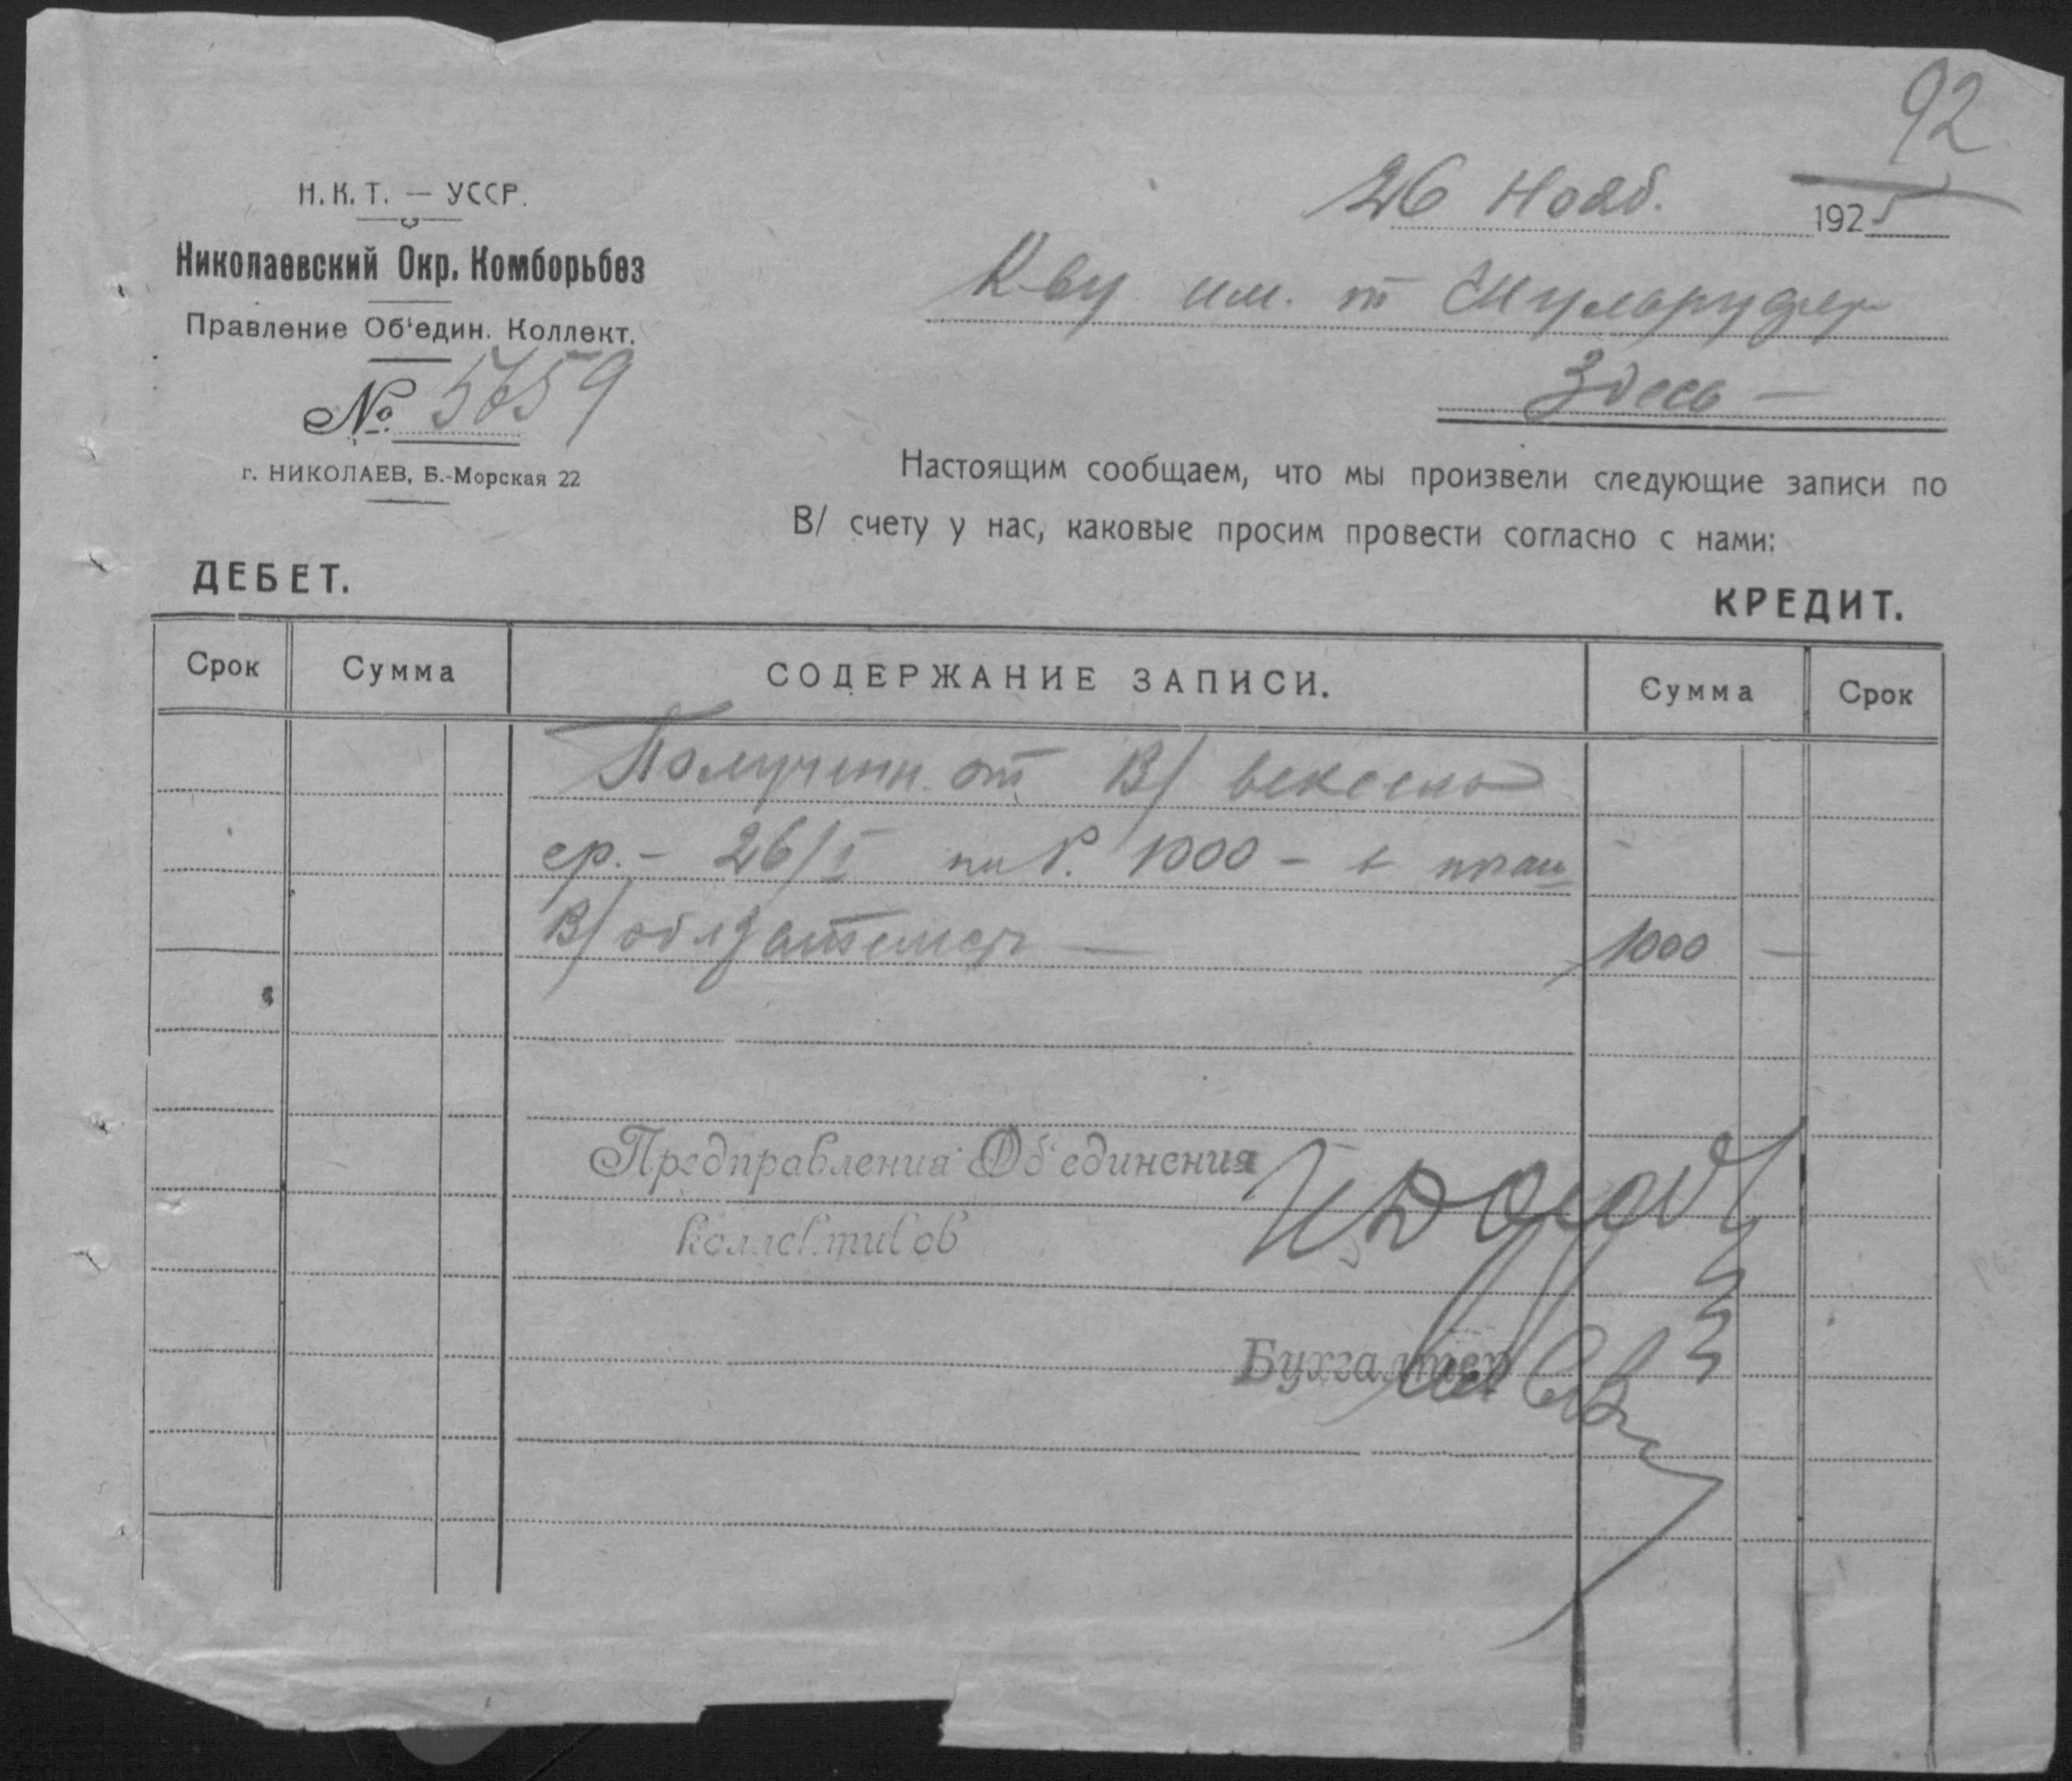 92
Н.К.Т. — УССР.
26 Нояб. 1925
Николаевский Окр. Комборьбез
К-ву им. т
Правление Об'един. Коллект.
Здесь —
№ 5659
г. НИКОЛАЕВ, Б.-Морская 22
Настоящим сообщаем, что мы произвели следующие записи по
В/ счету у нас, каковые просим провести согласно с нами:
ДЕБЕТ. КРЕДИТ.
Срок Сумма СОДЕРЖАНИЕ ЗАПИСИ. Сумма Срок
Получен. от В/ векселя
ср. – 26/I на Р. 1000 –
В/ обязательств — 1000 —
Предправления Об'единения
Коллективов
Бухгалтер